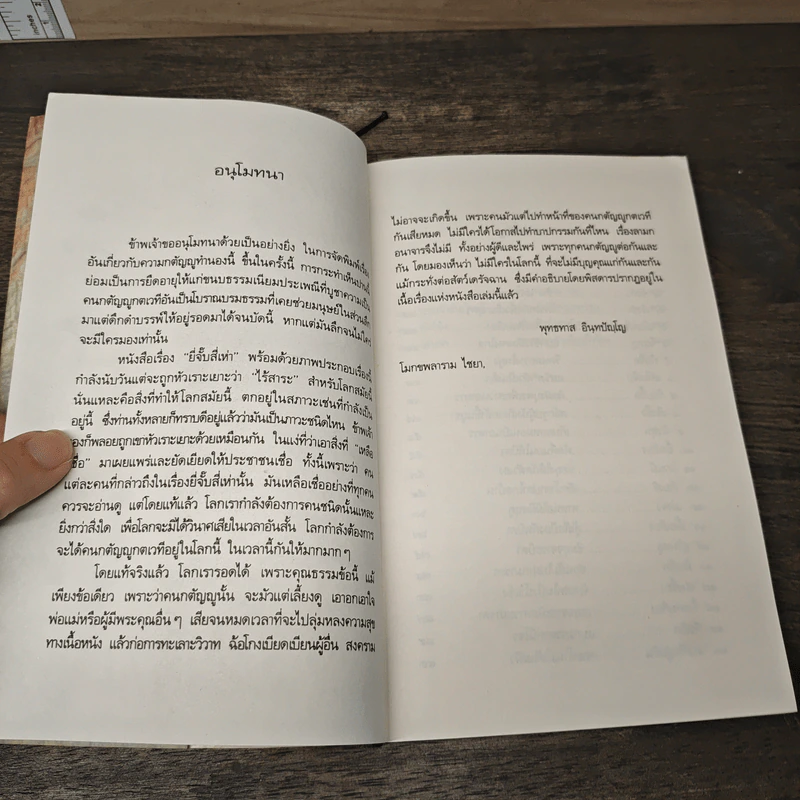 inches
อนุโมทนา
ข้าพเจ้าขออนุโมทนาด้วยเป็นอย่างยิ่ง ในการจัดพิมพ์เรื่อง
อันเกี่ยวกับความกตัญญูทำนองนี้ ขึ้นในครั้งนี้ การกระทำเห็นปานนี้
ย่อมเป็นการยืดอายุให้แก่ขนบธรรมเนียมประเพณีที่บูชาความเป็น
คนกตัญญูกตเวทีอันเป็นโบราณบรมธรรมที่เคยช่วยมนุษย์ในส่วนลึก
มาแต่ดึกดำบรรพ์ให้อยู่รอดมาได้จนบัดนี้ หากแต่มันลึกจนไม่ใคร่
จะมีใครมองเท่านั้น
หนังสือเรื่อง "ยี่จั๊บสี่เห่า" พร้อมด้วยภาพประกอบเรื่องนี้
กำลังนับวันแต่จะถูกหัวเราะเยาะว่า "ไร้สาระ" สำหรับโลกสมัยนี้
นั่นแหละคือสิ่งที่ทำให้โลกสมัยนี้ ตกอยู่ในสภาวะเช่นที่กำลังเป็น
อยู่นี้ ซึ่งท่านทั้งหลายก็ทราบดีอยู่แล้วว่ามันเป็นภาวะชนิดไหน ข้าพเจ้า
เองก็พลอยถูกเขาหัวเราะเยาะด้วยเหมือนกัน ในแง่ที่ว่าเอาสิ่งที่ "เหลือ
เชื่อ" มาเผยแพร่และยัดเยียดให้ประชาชนเชื่อ ทั้งนี้เพราะว่า คน
แต่ละคนที่กล่าวถึงในเรื่องยี่จั๊บสี่เห่านั้น มันเหลือเชื่ออย่างที่ทุกคน
ควรจะอ่านดู แต่โดยแท้แล้ว โลกเรากำลังต้องการคนชนิดนั้นแหละ
ยิ่งกว่าสิ่งใด เพื่อโลกจะมิได้วินาศเสียในเวลาอันสั้น โลกกำลังต้องการ
จะได้คนกตัญญูกตเวทีอยู่ในโลกนี้ ในเวลานี้กันให้มากมากๆ
โดยแท้จริงแล้ว โลกเรารอดได้ เพราะคุณธรรมข้อนี้ แม้
เพียงข้อเดียว เพราะว่าคนกตัญญูนั้น จะมัวแต่เลี้ยงดู เอาอกเอาใจ
พ่อแม่หรือผู้มีพระคุณอื่นๆ เสียจนหมดเวลาที่จะไปลุ่มหลงความสุข
ทางเนื้อหนัง แล้วก่อการทะเลาะวิวาท ฉ้อโกงเบียดเบียนผู้อื่น สงคราม
ไม่อาจจะเกิดขึ้น เพราะคนมัวแต่ไปทำหน้าที่ของคนกตัญญูกตเวที
กันเสียหมด ไม่มีใครได้โอกาสไปทำบาปกรรมกันที่ไหน เรื่องลามก
อนาจารจึงไม่มี ทั้งอย่างผู้ดีและไพร่ เพราะทุกคนกตัญญูต่อกันและ
กัน โดยมองเห็นว่า ไม่มีใครในโลกนี้ ที่จะไม่มีบุญคุณแก่กันและกัน
แม้กระทั่งต่อสัตว์เดรัจฉาน ซึ่งมีคำอธิบายโดยพิสดารปรากฏอยู่ใน
เนื้อเรื่องแห่งหนังสือเล่มนี้แล้ว
พุทธทาส อินฺทปัญฺโญ
โมกขพลาราม ไชยา.